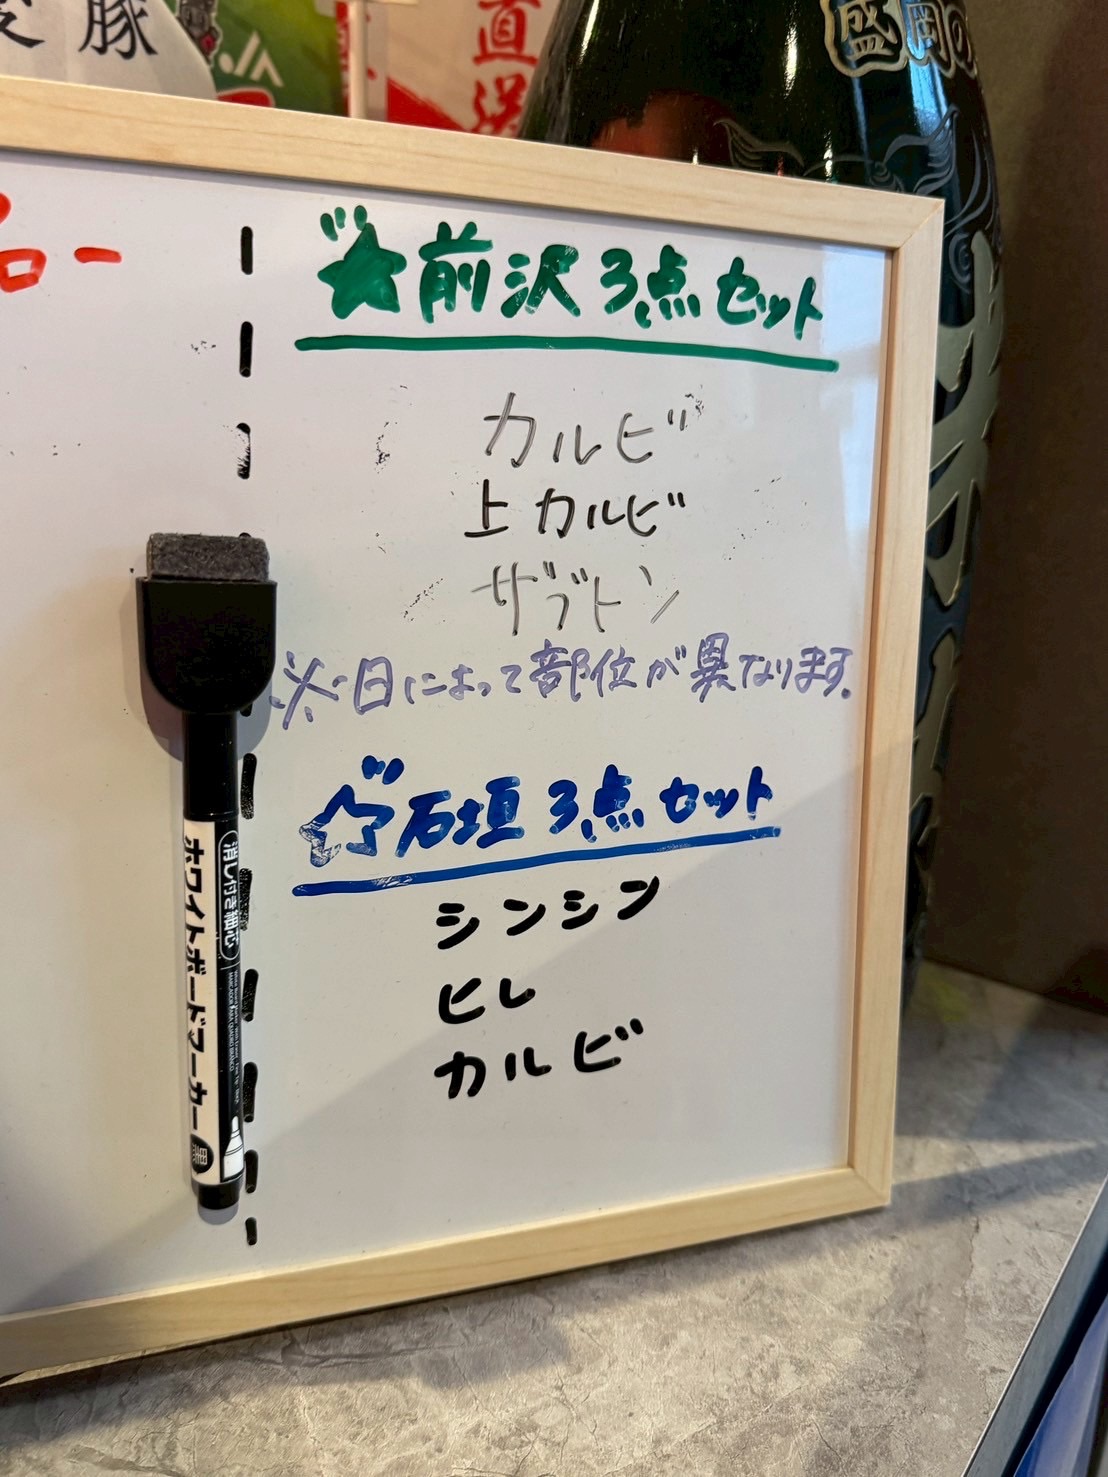 豚
JA
直送
盛岡の
ロー
★前沢3点セット
カルビ
上カルビ
ザブトン
※日によって部位が異なります。
☆石垣3点セット
シンシン
ヒレ
カルビ
消し付き細心
ホワイトボードマーカー 黒